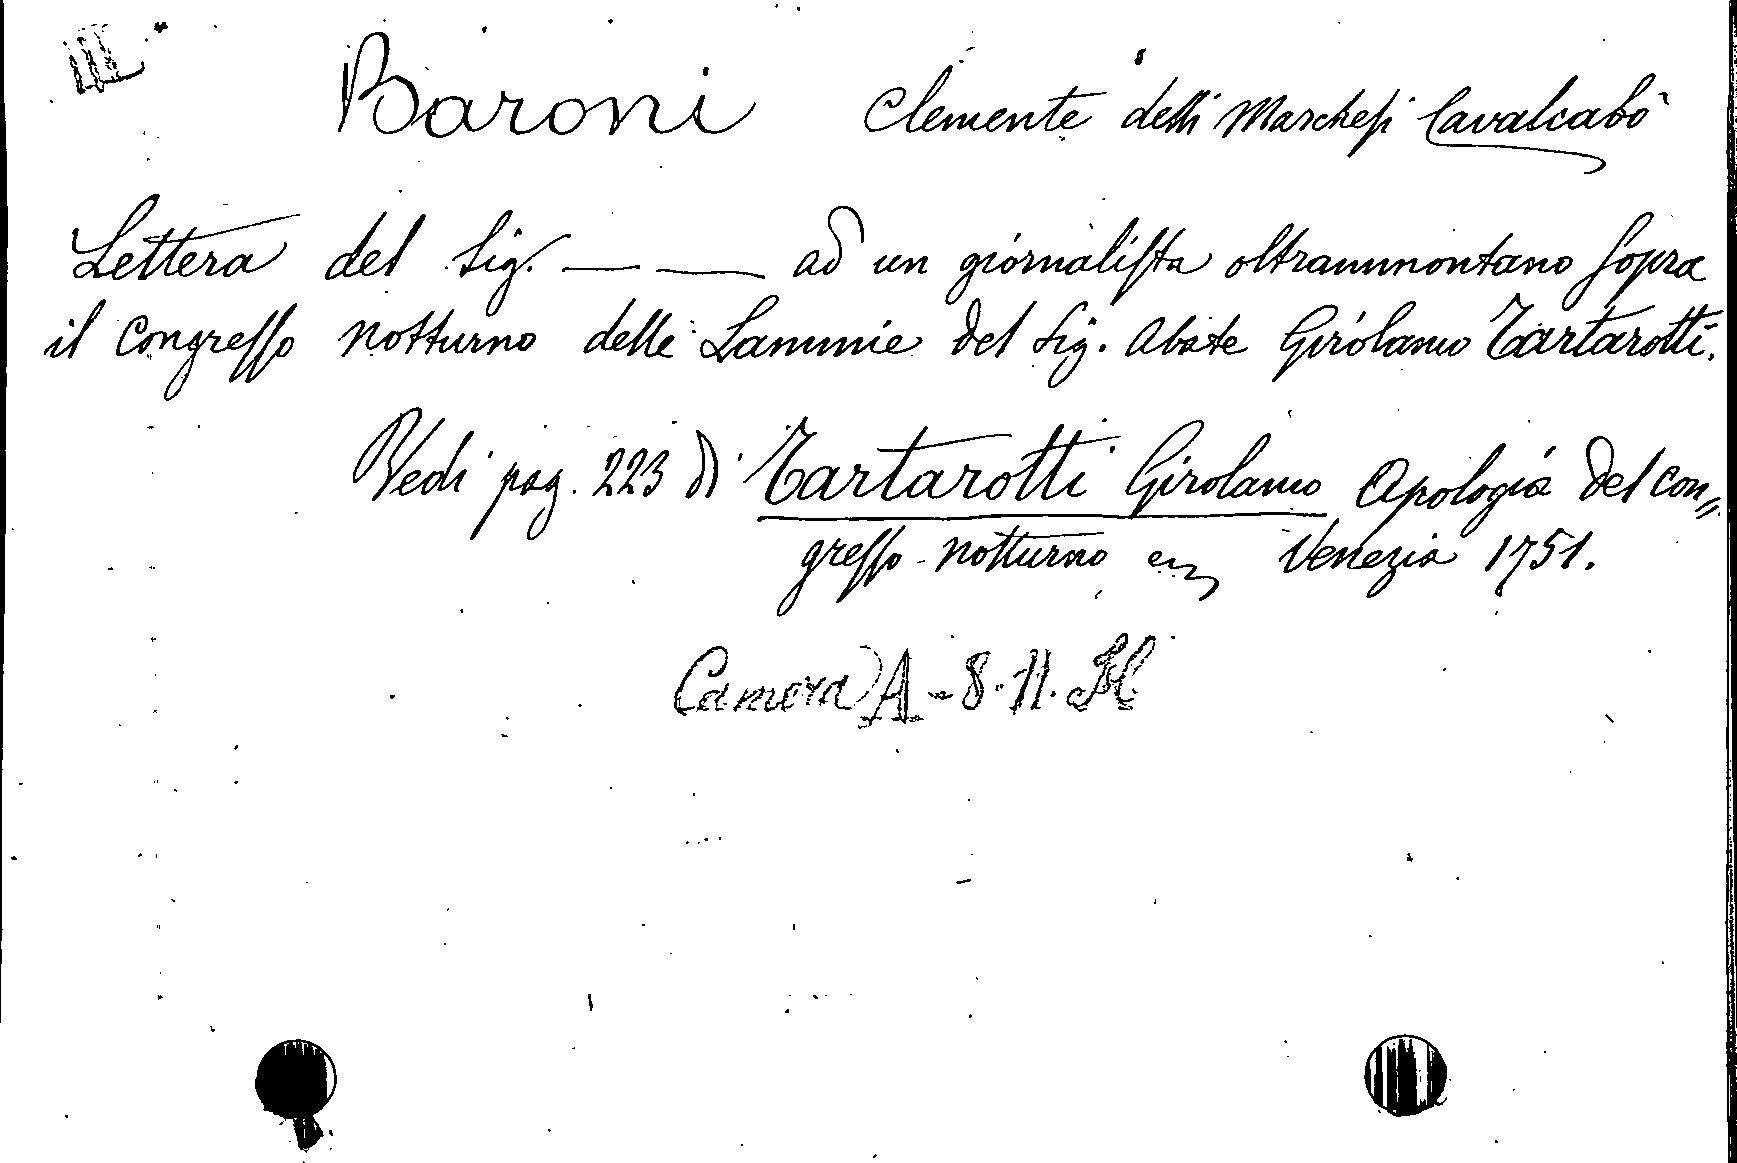 III
Baroni Clemente delli Marchesi Cavalcabò
Lettera del Sig. — — ad un giornalista oltrammontano sopra
il Congresso notturno delle Lammie del Sig. Abate Girolamo Tartarotti.
Vedi pag. 223 di Tartarotti Girolamo Apologia del con„
gresso notturno Venezia 1751.
Camera A - 8. 11.